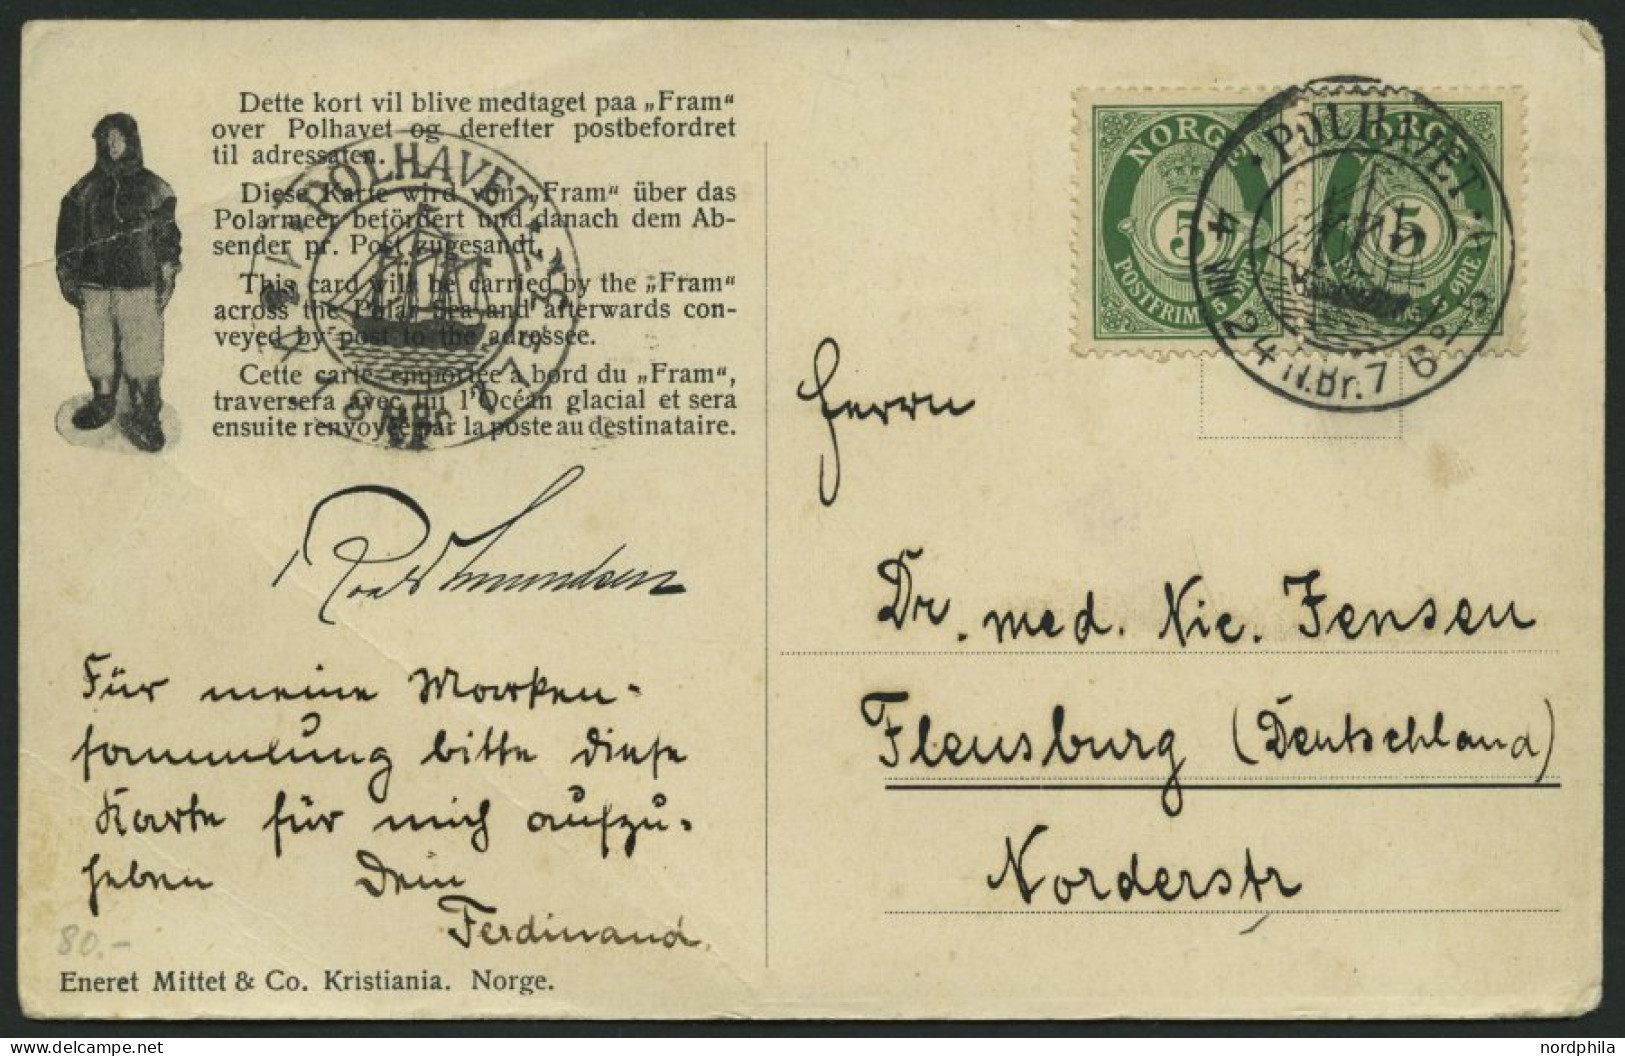 Dette kort vil blive medtaget paa „Fram“
over Polhavet og derefter postbefordret
til adressaten.
Diese Karte wird von „Fram“ über das
Polarmeer befördert und danach dem Ab-
sender pr. Post zugesandt.
This card will be carried by the „Fram“
across the Polar Sea and afterwards con-
veyed by post to the adressee.
Cette carte, emportée à bord du „Fram“,
traversera avec lui l'Océan glacial et sera
ensuite renvoyée par la poste au destinataire.
POLHAVET
Roald Amundsen
Für meine Marken-
sammlung bitte diese
Karte für mich aufzu-
heben Dein
Ferdinand
80.-
Eneret Mittet & Co. Kristiania. Norge.
NORGE
5
POSTFRIM 5 ØRE
NORGE
5
5 ØRE
POLHAVET
4 VII 24 N.Br. 7
Herrn
Dr. med. Nic. Jensen
Flensburg (Deutschland)
Norderstr
nordphila
www.delcampe.net